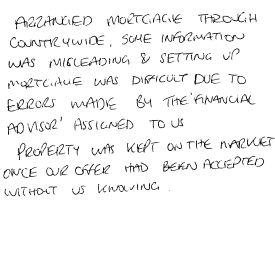 ARRANGED MORTGAGE THROUGH
COUNTRYWIDE, SOME INFORMATION
WAS MISLEADING & SETTING UP
MORTGAGE WAS DIFFICULT DUE TO
ERRORS MADE BY THE 'FINANCIAL
ADVISOR' ASSIGNED TO US
PROPERTY WAS KEPT ON THE MARKET
ONCE OUR OFFER HAD BEEN ACCEPTED
WITHOUT US KNOWING.